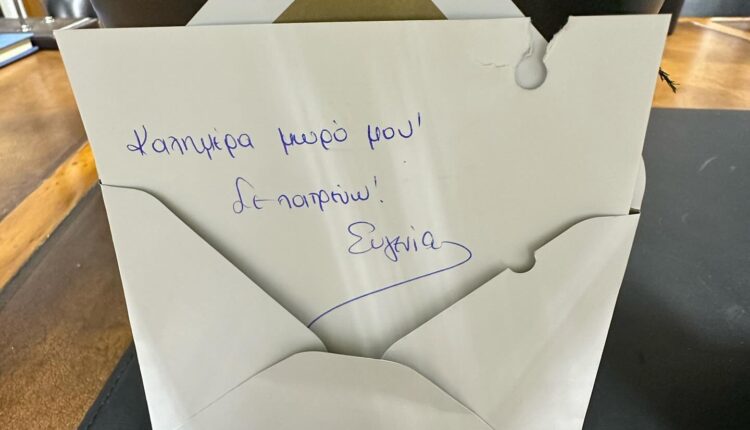 Καλημέρα μωρό μου!
Σε λατρεύω!
Ευγενία